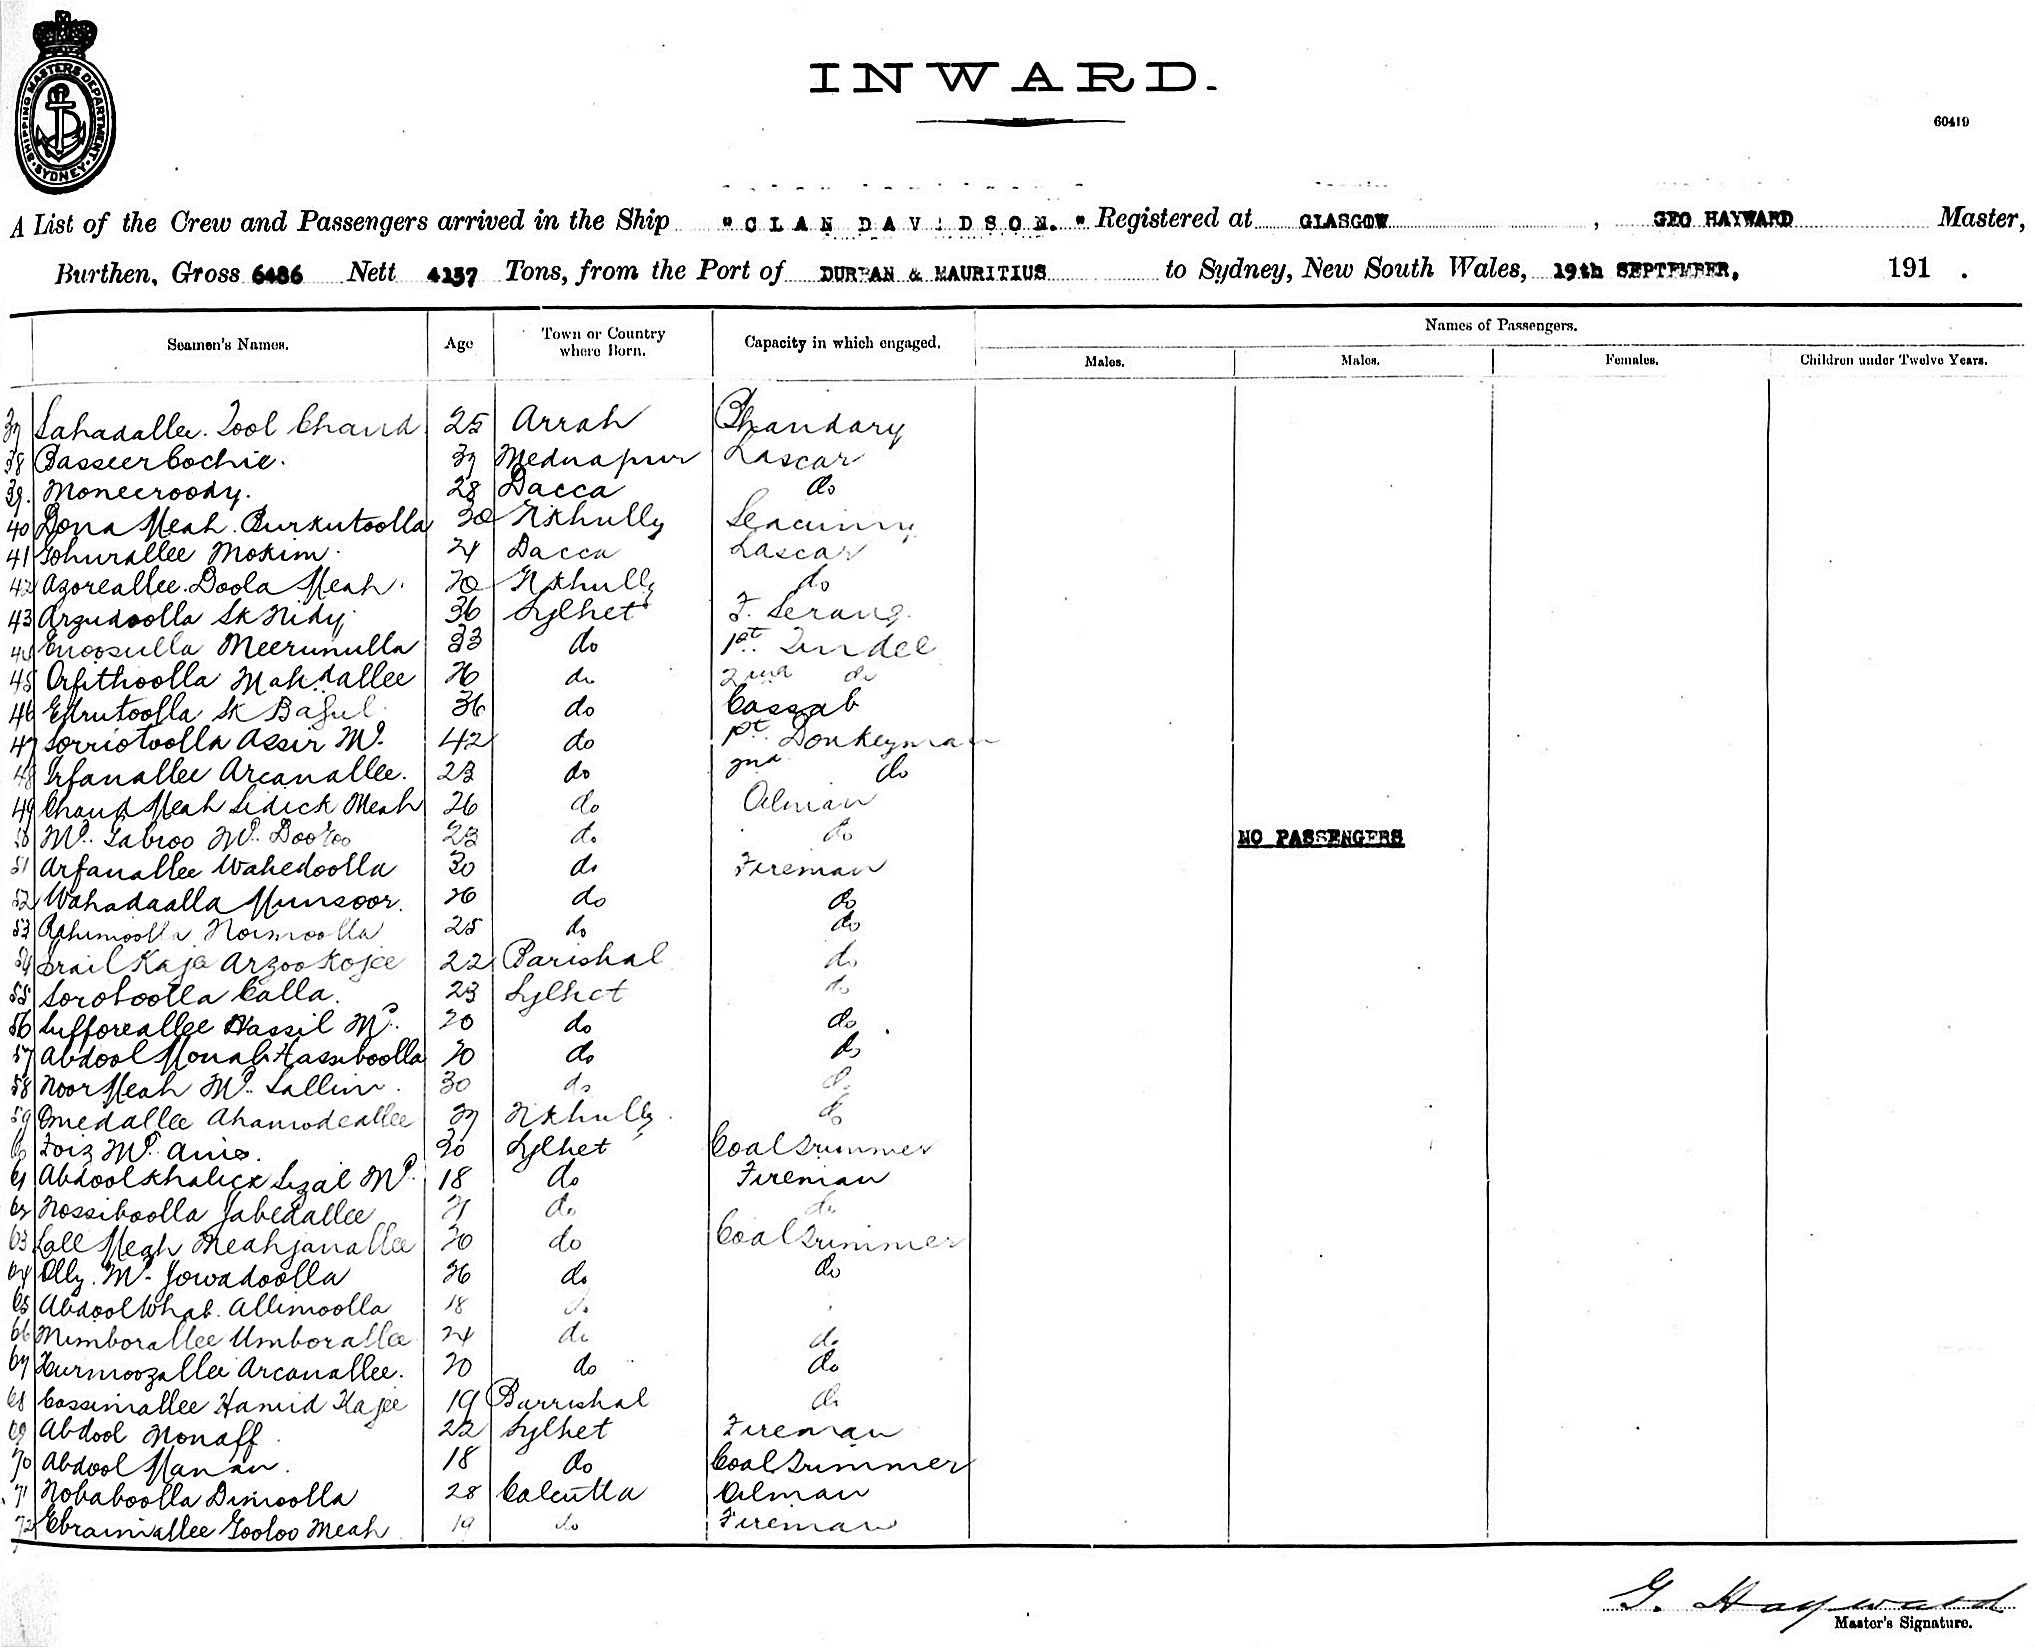 SHIPPING MASTERS DEPARTMENT · SYDNEY ·
INWARD.
60419
A List of the Crew and Passengers arrived in the Ship "CLAN DAVIDSON." Registered at GLASGOW, GEO HAYWARD Master,
Burthen, Gross 6486 Nett 4137 Tons, from the Port of DURBAN & MAURITIUS to Sydney, New South Wales, 19th SEPTEMBER, 191 .
Seamen's Names. Age Town or Country where Born. Capacity in which engaged. Names of Passengers.
Males. Males. Females. Children under Twelve Years.
37 Sahadallee. Zool Chand 25 Arrah Bhandary
38 Basseer Cochie. 37 Mednapur Lascar
39. Moneeroody. 28 Dacca do
40 Dona Meah. Burkutoolla 30 Nkhully
41 Gohurallee Mokim. 21 Dacca Lascar
42 Azoreallee. Doola Meah. 20 Nkhully do
43 Arzudoolla Sk Nidy 36 Sylhet F. Serang
44 Enoosulla Meerunulla 33 do 1st. Tindel
45 Orfithoolla Mahdallee 26 do 2nd do
46 Sk 36 do Cassab
47 Sorriotoolla Assir Md. 42 do 1st. Donkeyman
48 Irfanallee Arcanallee. 23 do 2nd do
49 Chand Meah Sidick Meah 26 do Oilman
50 Md. Gabroo Md. 23 do do
51 Arfanallee Wahedoolla 30 do Fireman
52 Wahadaalla Munsoor. 26 do do
53 Rahimoolla Noimoolla 25 do do
54 Israil Kaja Arzoo Kojee 22 Barishal do
55 Sorotoolla Calla. 23 Sylhet do
56 Sufforeallee Hassil Md. 20 do do
57 Abdool Monab Hassiboolla 20 do do
58 Noor Meah Md. Sallim. 30 do do
59 Omedallee Ahamodeallee 37 Nkhully do
60 Foiz Md. Anis. 20 Sylhet Coal Trimmer
61 Abdool Khalick Sizal Md. 18 do Fireman
62 Nossiboolla Jabedallee 21 do do
63 Lall Meah Meahjanallee 20 do Coal Trimmer
64 Olly. Md. Jowadoolla 26 do do
65 Abdool Whab. Allimoolla 18 do
66 Mimborallee Umborallee 24 do do
67 Hurmoozallee Arcanallee. 20 do do
68 Cassimallee Hamid Kajee 19 Burrishal do
69 Abdool Nonaff 22 Sylhet Fireman
70 Abdool Manan. 18 do Coal Trimmer
71 Nobaboolla Dimoolla 28 Calcutta Oilman
72 Ebraimallee Gooloo Meah 19 do Fireman
NO PASSENGERS
G. Hayward
Master's Signature.